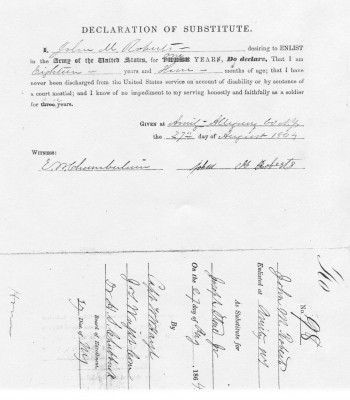 DECLARATION OF SUBSTITUTE.
I, John M. Roberts desiring to ENLIST
in the Army of the United States, for THREE YEARS, Do declare, That I am
Eighteen years and months of age; that I have
never been discharged from the United States service on account of disability or by sentence of
a court martial; and I know of no impediment to my serving honestly and faithfully as a soldier
for three years.
GIVEN at Amity Allegany Co NY
the 27th day of August 1864
WITNESS:
E. M. Chamberlain John M Roberts
No. 98
John M. Roberts
Enlisted at Amity NY
As Substitute for
Joseph
On the 27 day of Aug 1864
By
Board of Enrollment,
27 Dist. of NY